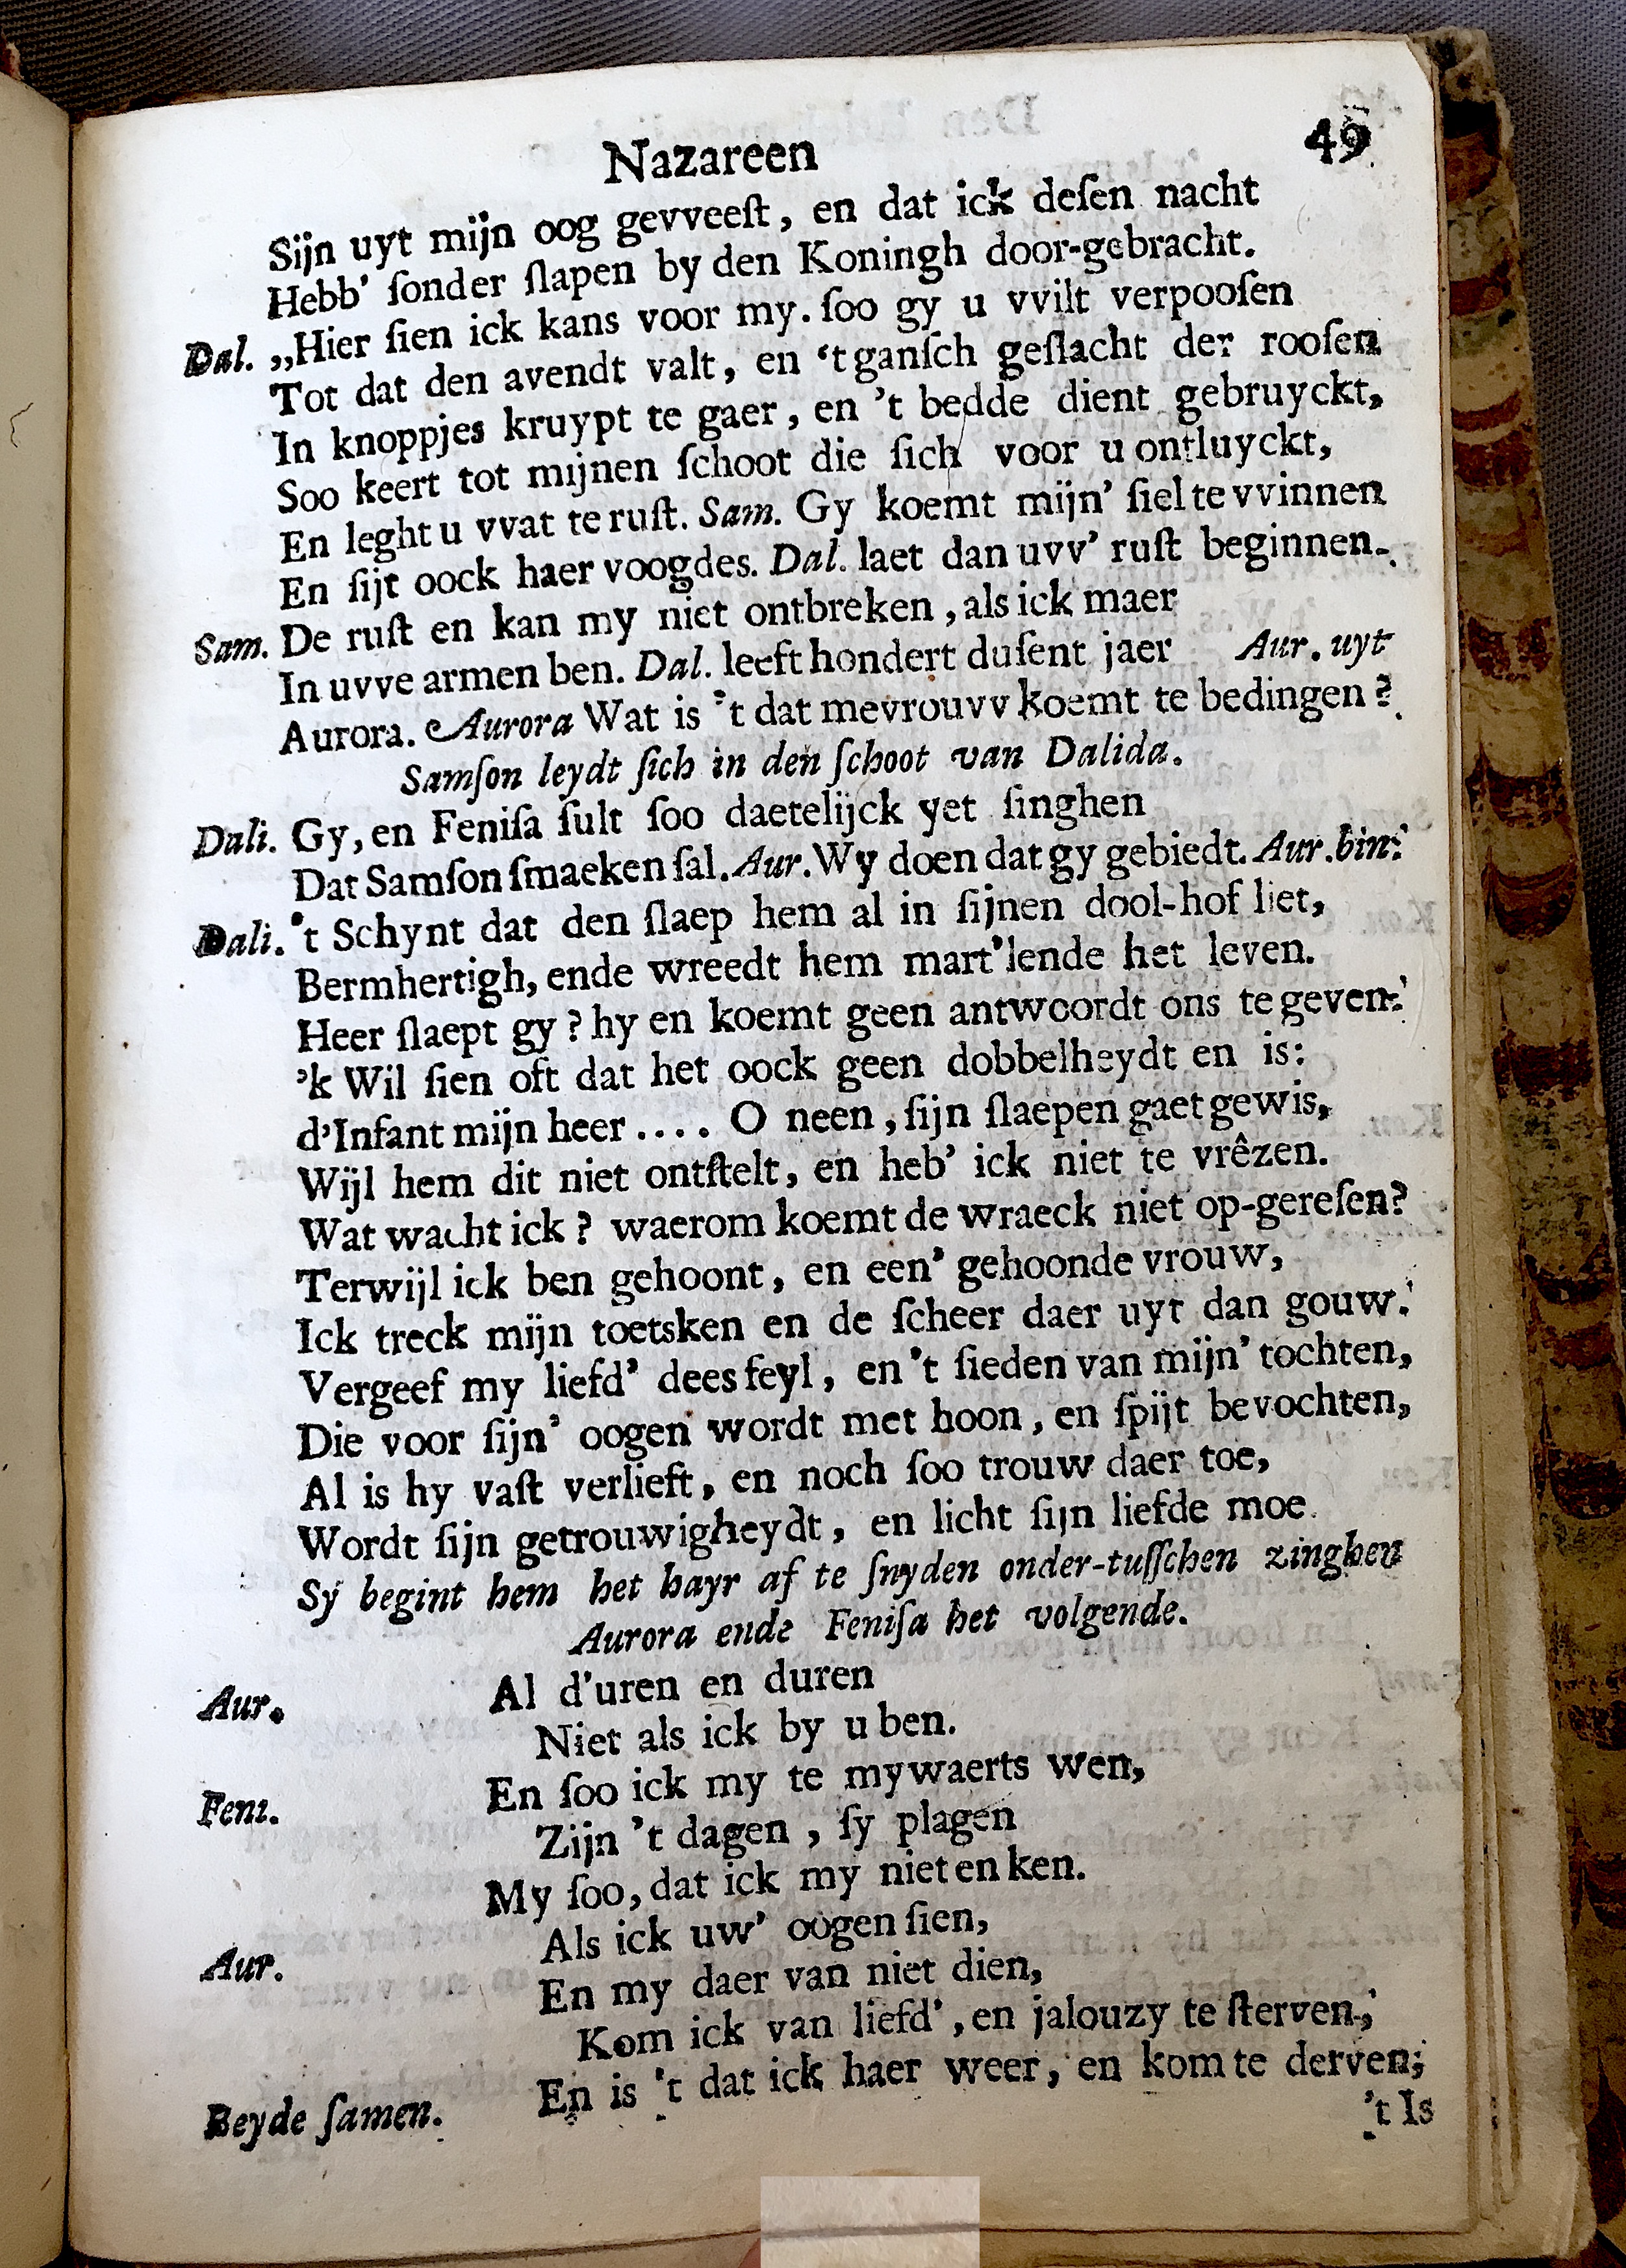 Nazareen 49
Sijn uyt mijn oog gevveeſt, en dat ick deſen nacht
Hebb' ſonder ſlapen by den Koningh door-gebracht.
Dal. „Hier ſien ick kans voor my. ſoo gy u vvilt verpooſen
Tot dat den avendt valt, en ‘t ganſch geſlacht der rooſen
In knoppjes kruypt te gaer, en 't bedde dient gebruyckt,
Soo keert tot mijnen ſchoot die ſich voor u ontluyckt,
En leght u vvat te ruſt. Sam. Gy koemt mijn' ſiel te vvinnen
En ſijt oock haer voogdes. Dal. laet dan uvv' ruſt beginnen.
Sam. De ruſt en kan my niet ontbreken, als ick maer
In uvve armen ben. Dal. leeft hondert duſent jaer Aur. uyt
Aurora. Aurora Wat is 't dat mevrouvv koemt te bedingen?
Samſon leydt ſich in den ſchoot van Dalida.
Dali. Gy, en Feniſa ſult ſoo daetelijck yet ſinghen
Dat Samſon ſmaeken ſal. Aur. Wy doen dat gy gebiedt. Aur. bin:
Dali. 't Schynt dat den ſlaep hem al in ſijnen dool-hof liet,
Bermhertigh, ende wreedt hem mart'lende het leven.
Heer ſlaept gy? hy en koemt geen antwoordt ons te geven:
'k Wil ſien oft dat het oock geen dobbelheydt en is:
d'Infant mijn heer .... O neen, ſijn ſlaepen gaet gewis,
Wijl hem dit niet ontſtelt, en heb' ick niet te vrêzen.
Wat wacht ick? waerom koemt de wraeck niet op-gereſen?
Terwijl ick ben gehoont, en een' gehoonde vrouw,
Ick treck mijn toetsken en de ſcheer daer uyt dan gouw.
Vergeef my liefd' dees feyl, en 't ſieden van mijn' tochten,
Die voor ſijn' oogen wordt met hoon, en ſpijt bevochten,
Al is hy vaſt verlieft, en noch ſoo trouw daer toe,
Wordt ſijn getrouwigheydt, en licht ſijn liefde moe.
Sy begint hem het hayr af te ſnyden onder-tuſſchen zinghen
Aurora ende Feniſa het volgende.
Aur. Al d'uren en duren
Niet als ick by u ben.
Feni. En ſoo ick my te mywaerts wen,
Zijn 't dagen, ſy plagen
My ſoo, dat ick my niet en ken.
Aur. Als ick uw' oogen ſien,
En my daer van niet dien,
Kom ick van liefd', en jalouzy te ſterven,
Beyde ſamen. En is 't dat ick haer weer, en kom te derven;
't Is